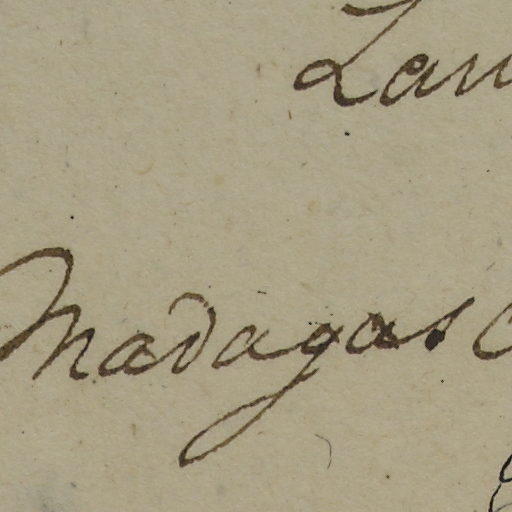 Lan
Madagasc